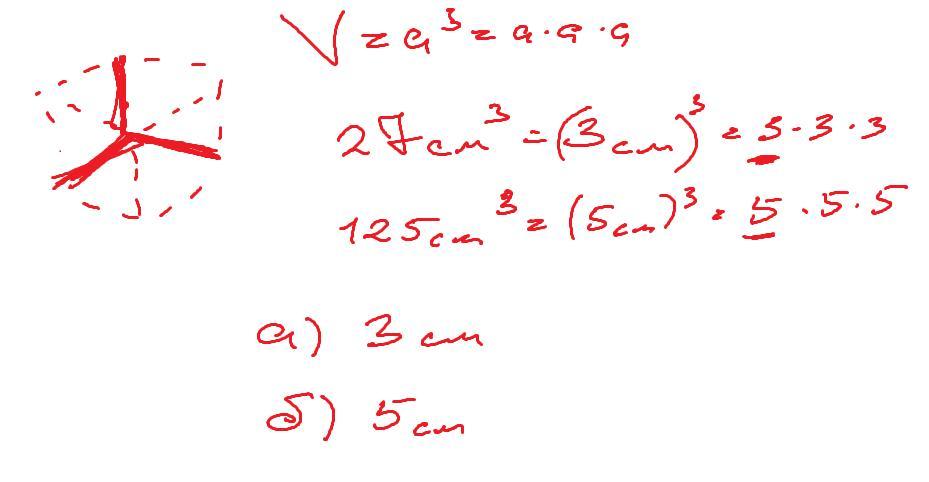 V = a³ = a · a · a
27 см³ = (3 см)³ = 3 · 3 · 3
125 см³ = (5 см)³ = 5 · 5 · 5
а) 3 см
б) 5 см